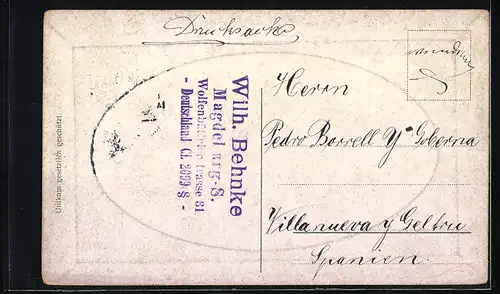 Drucksache
Unikum gesetzlich geschützt.
Wilh. Behnke
Magdeburg-S.
Wolfenbüttelerstrasse 31
- Deutschland Cl. 2099 S -
Herrn
Pedro Borrell y Goberna
Villanueva y Geltru
Spanien.